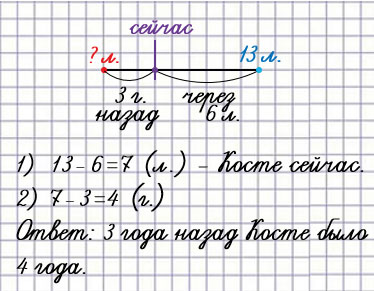 сейчас
? л. 13 л.
3 г. через
назад 6 л.
1) 13 - 6 = 7 (л.) - Косте сейчас.
2) 7 - 3 = 4 (г.)
Ответ: 3 года назад Косте было
4 года.